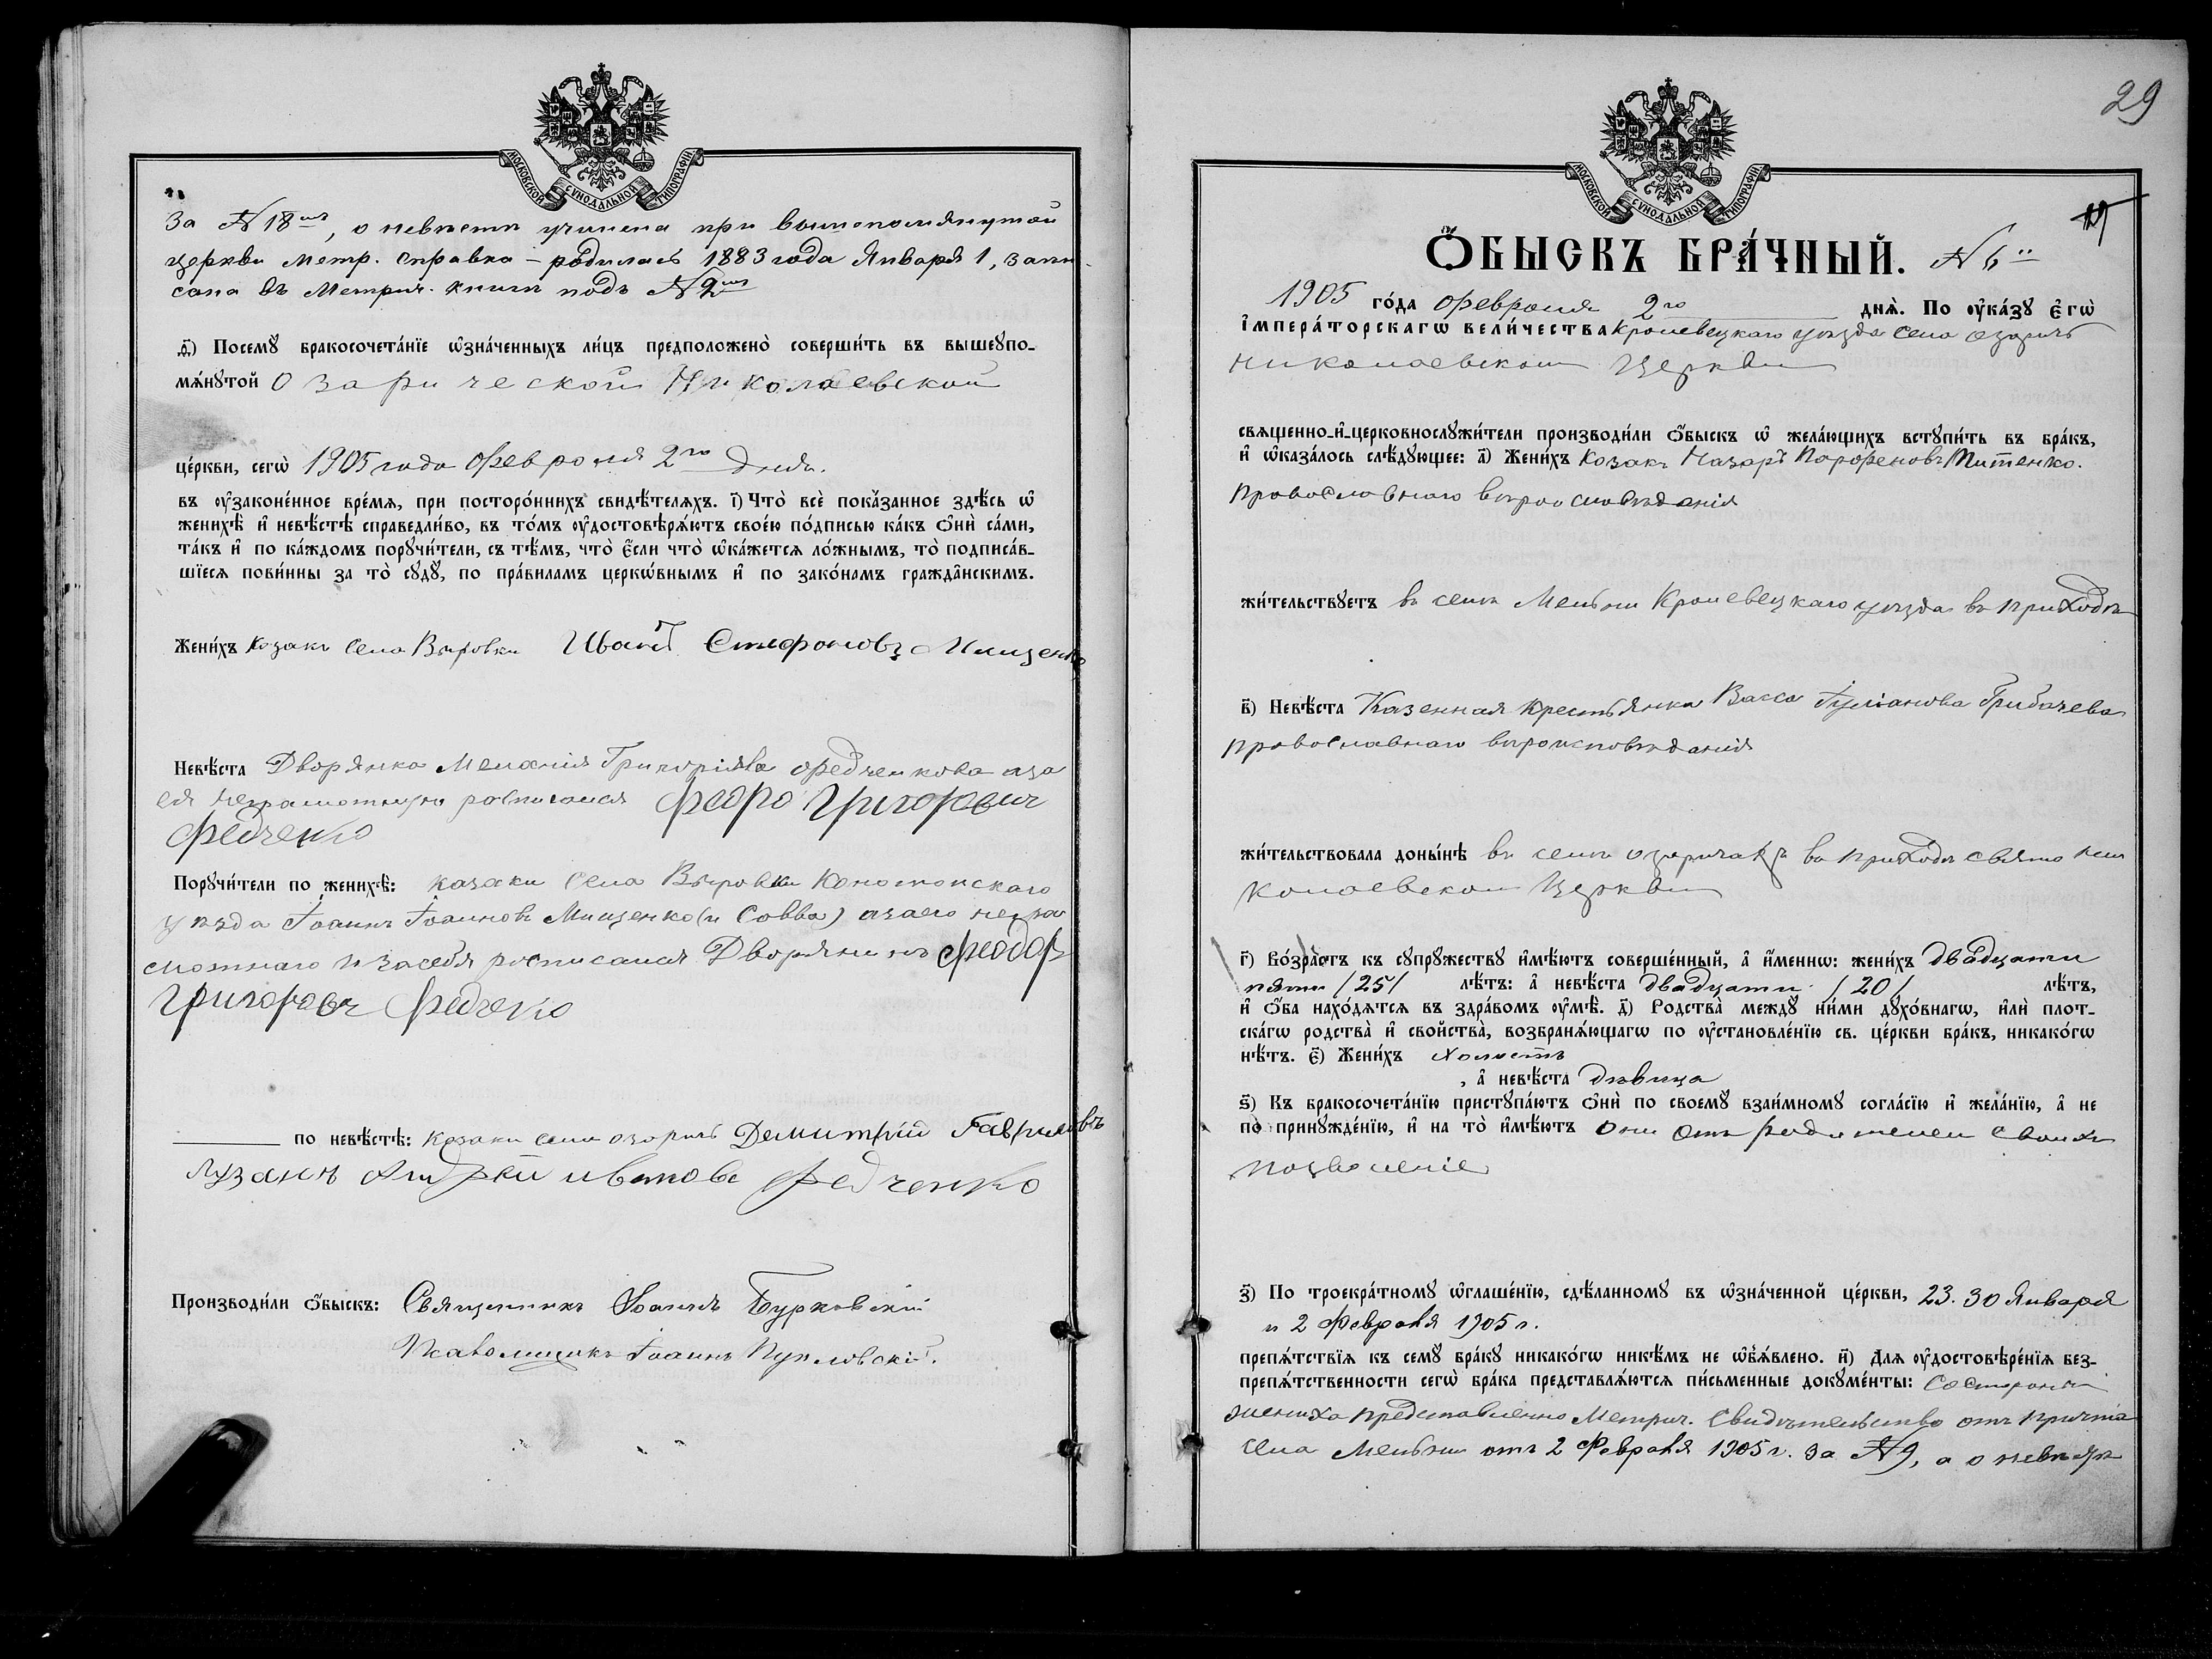 МОСКОВСКОЙ СУНОДАЛЬНОЙ ТИПОГРАФІИ
За № 18мъ, о невѣстѣ учинена при вышепомянутой
церкви метр. справка – родилась 1883 года Января 1, запи-
сана въ Метрич. книгѣ подъ № 2мъ
д҃) Посемꙋ̀ бракосочета́нїе ѡ҆зна́ченныхъ ли́цъ предположено̀ соверши́ть въ вышеꙋпо-
мѧ́нꙋтой Озарической Николаевской
це́ркви, сегѡ̀ 1905 года февраля 2го дня.
въ ᲂу҆законе́нное вре́мѧ, при посторо́ннихъ свидѣ́телѧхъ. і҃) Что̀ всѐ пока́занное здѣ́сь ѡ҆
женихѣ̀ и҆ невѣ́стѣ справедли́во, въ то́мъ ᲂу҆достовѣрѧ́ютъ свое́ю по́дписью ка́къ ѻ҆нѝ са́ми,
та́къ и҆ по ка́ждомъ порꙋчи́тели, съ тѣ́мъ, что̀ є҆́сли что̀ ѡ҆ка́жетсѧ ло́жнымъ, то̀ подписа́в-
шїесѧ пови́нны за то̀ сꙋдꙋ̀, по пра́виламъ церко́внымъ и҆ по зако́намъ гражда́нскимъ.
Жени́хъ козакъ села Вировки Иванъ Стефановъ Мищенко
Невѣ́ста Дворянка Меланія Григоріева Федченкова а за
ея неграмотную росписался Феоро Григоревич
Федченко
Порꙋчи́тели по женихѣ̀: казаки села Вировки Конотопскаго
уѣзда Іоаннъ Іоанновъ Мищенко (и Савва) а за его негра
мотнаго и за себя росписался Дворянинъ Феодоръ
Григоровъ Федченко
по невѣ́стѣ: козаки села озаричъ Демитрій Гавриловъ
Лузанъ Андрей ивановъ Федченко
Производи́ли ѻ҆́быскъ: Священникъ Іоаннъ Бурковскій
Псаломщикъ Іоаннъ
29
МОСКОВСКОЙ СУНОДАЛЬНОЙ ТИПОГРАФІИ
Ѻ҆́БЫСКЪ БРА́ЧНЫЙ. № 6й
1905 го́да февраля 2го днѧ̀. По ᲂу҆ка́зꙋ Є҆гѡ̀
І҆мпера́торскагѡ вели́чества Кролевецкаго уѣзда села озаричъ
Николаевской Церкви
свѧщенно-и҆-церковнослꙋжи́тели производи́ли ѻ҆́быскъ ѡ҆ жела́ющихъ встꙋпи́ть въ бра́къ,
и҆ ѡ҆каза́лось слѣ́дꙋющее: а҃) Жени́хъ козакъ Назаръ Парфеновъ Титенко.
православнаго вѣроисповѣданія
жи́тельствꙋетъ въ селѣ Мельни Кролевецкаго уѣзда въ приходѣ
в҃) Невѣ́ста Казенная крестьянка Васса Іуліанова Грибачева
православнаго вѣроисповѣданія
жи́тельствовала доны́нѣ въ селѣ озаричахъ въ приходѣ свято Ни
колаевской Церкви
г҃) Во́зрастъ къ сꙋпрꙋ́жествꙋ и҆мѣ́ютъ соверше́нный, а҆ и҆́меннѡ: жени́хъ двадцати
пяти /25/ лѣ́тъ: а҆ невѣ́ста двадцати /20/ лѣ́тъ,
и҆ ѻ҆́ба нахо́дѧтсѧ въ здра́вомъ ᲂу҆мѣ̀. д҃) Родства̀ междꙋ̀ ни́ми дꙋхо́внагѡ, и҆лѝ плот-
ска́гѡ родства̀ и҆ свойства̀, возбранѧ́ющагѡ по ᲂу҆становле́нїю св. це́ркви бра́къ, никако́гѡ
нѣ́тъ. є҃) Жени́хъ холостъ
, а҆ невѣ́ста дѣвица
ѕ҃) Къ бракосочета́нїю пристꙋпа́ютъ ѻ҆нѝ по своемꙋ̀ взаи́мномꙋ согла́сїю и҆ жела́нїю, а҆ не
по принꙋжде́нїю, и҆ на то̀ и҆мѣ́ютъ они отъ родителей своихъ
позволеніе
з҃) По троекра́тномꙋ ѡ҆глаше́нїю, сдѣ́ланномꙋ въ ѡ҆зна́ченной це́ркви, 23. 30 Января
и 2 февраля 1905 г.
препѧ́тствїѧ къ семꙋ̀ бра́кꙋ никако́гѡ никѣ́мъ не ѡ҆б̾ѧ́влено. и҃) Для ᲂу҆достовѣре́нїѧ без-
препѧ́тственности сегѡ̀ бра́ка представлѧ́ютсѧ пи́сьменные докꙋме́нты: со стороны
жениха представленно Метрич. Свидѣтельство отъ причта
села Мельни отъ 2 Февраля 1905 г. за № 9, а о невѣстѣ